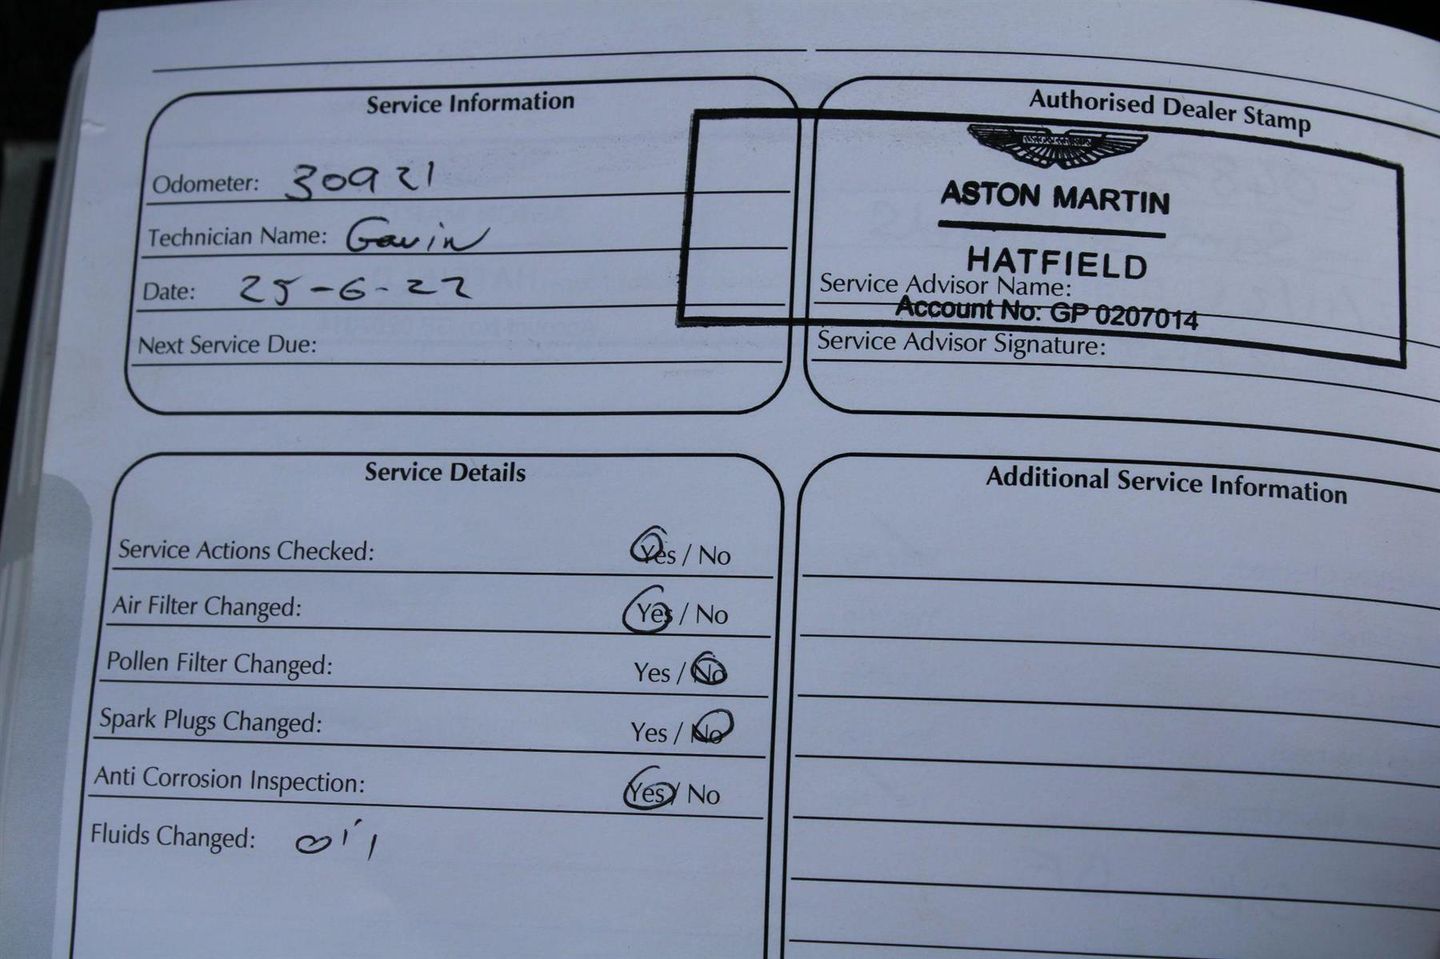 Service Information
Odometer: 30921
Technician Name: Gavin
Date: 25-6-22
Next Service Due:
Authorised Dealer Stamp
ASTON MARTIN
HATFIELD
Service Advisor Name:
Account No: GP 0207014
Service Advisor Signature:
Service Details
Service Actions Checked: Yes / No
Air Filter Changed: Yes / No
Pollen Filter Changed: Yes / No
Spark Plugs Changed: Yes / No
Anti Corrosion Inspection: Yes / No
Fluids Changed: oil
Additional Service Information